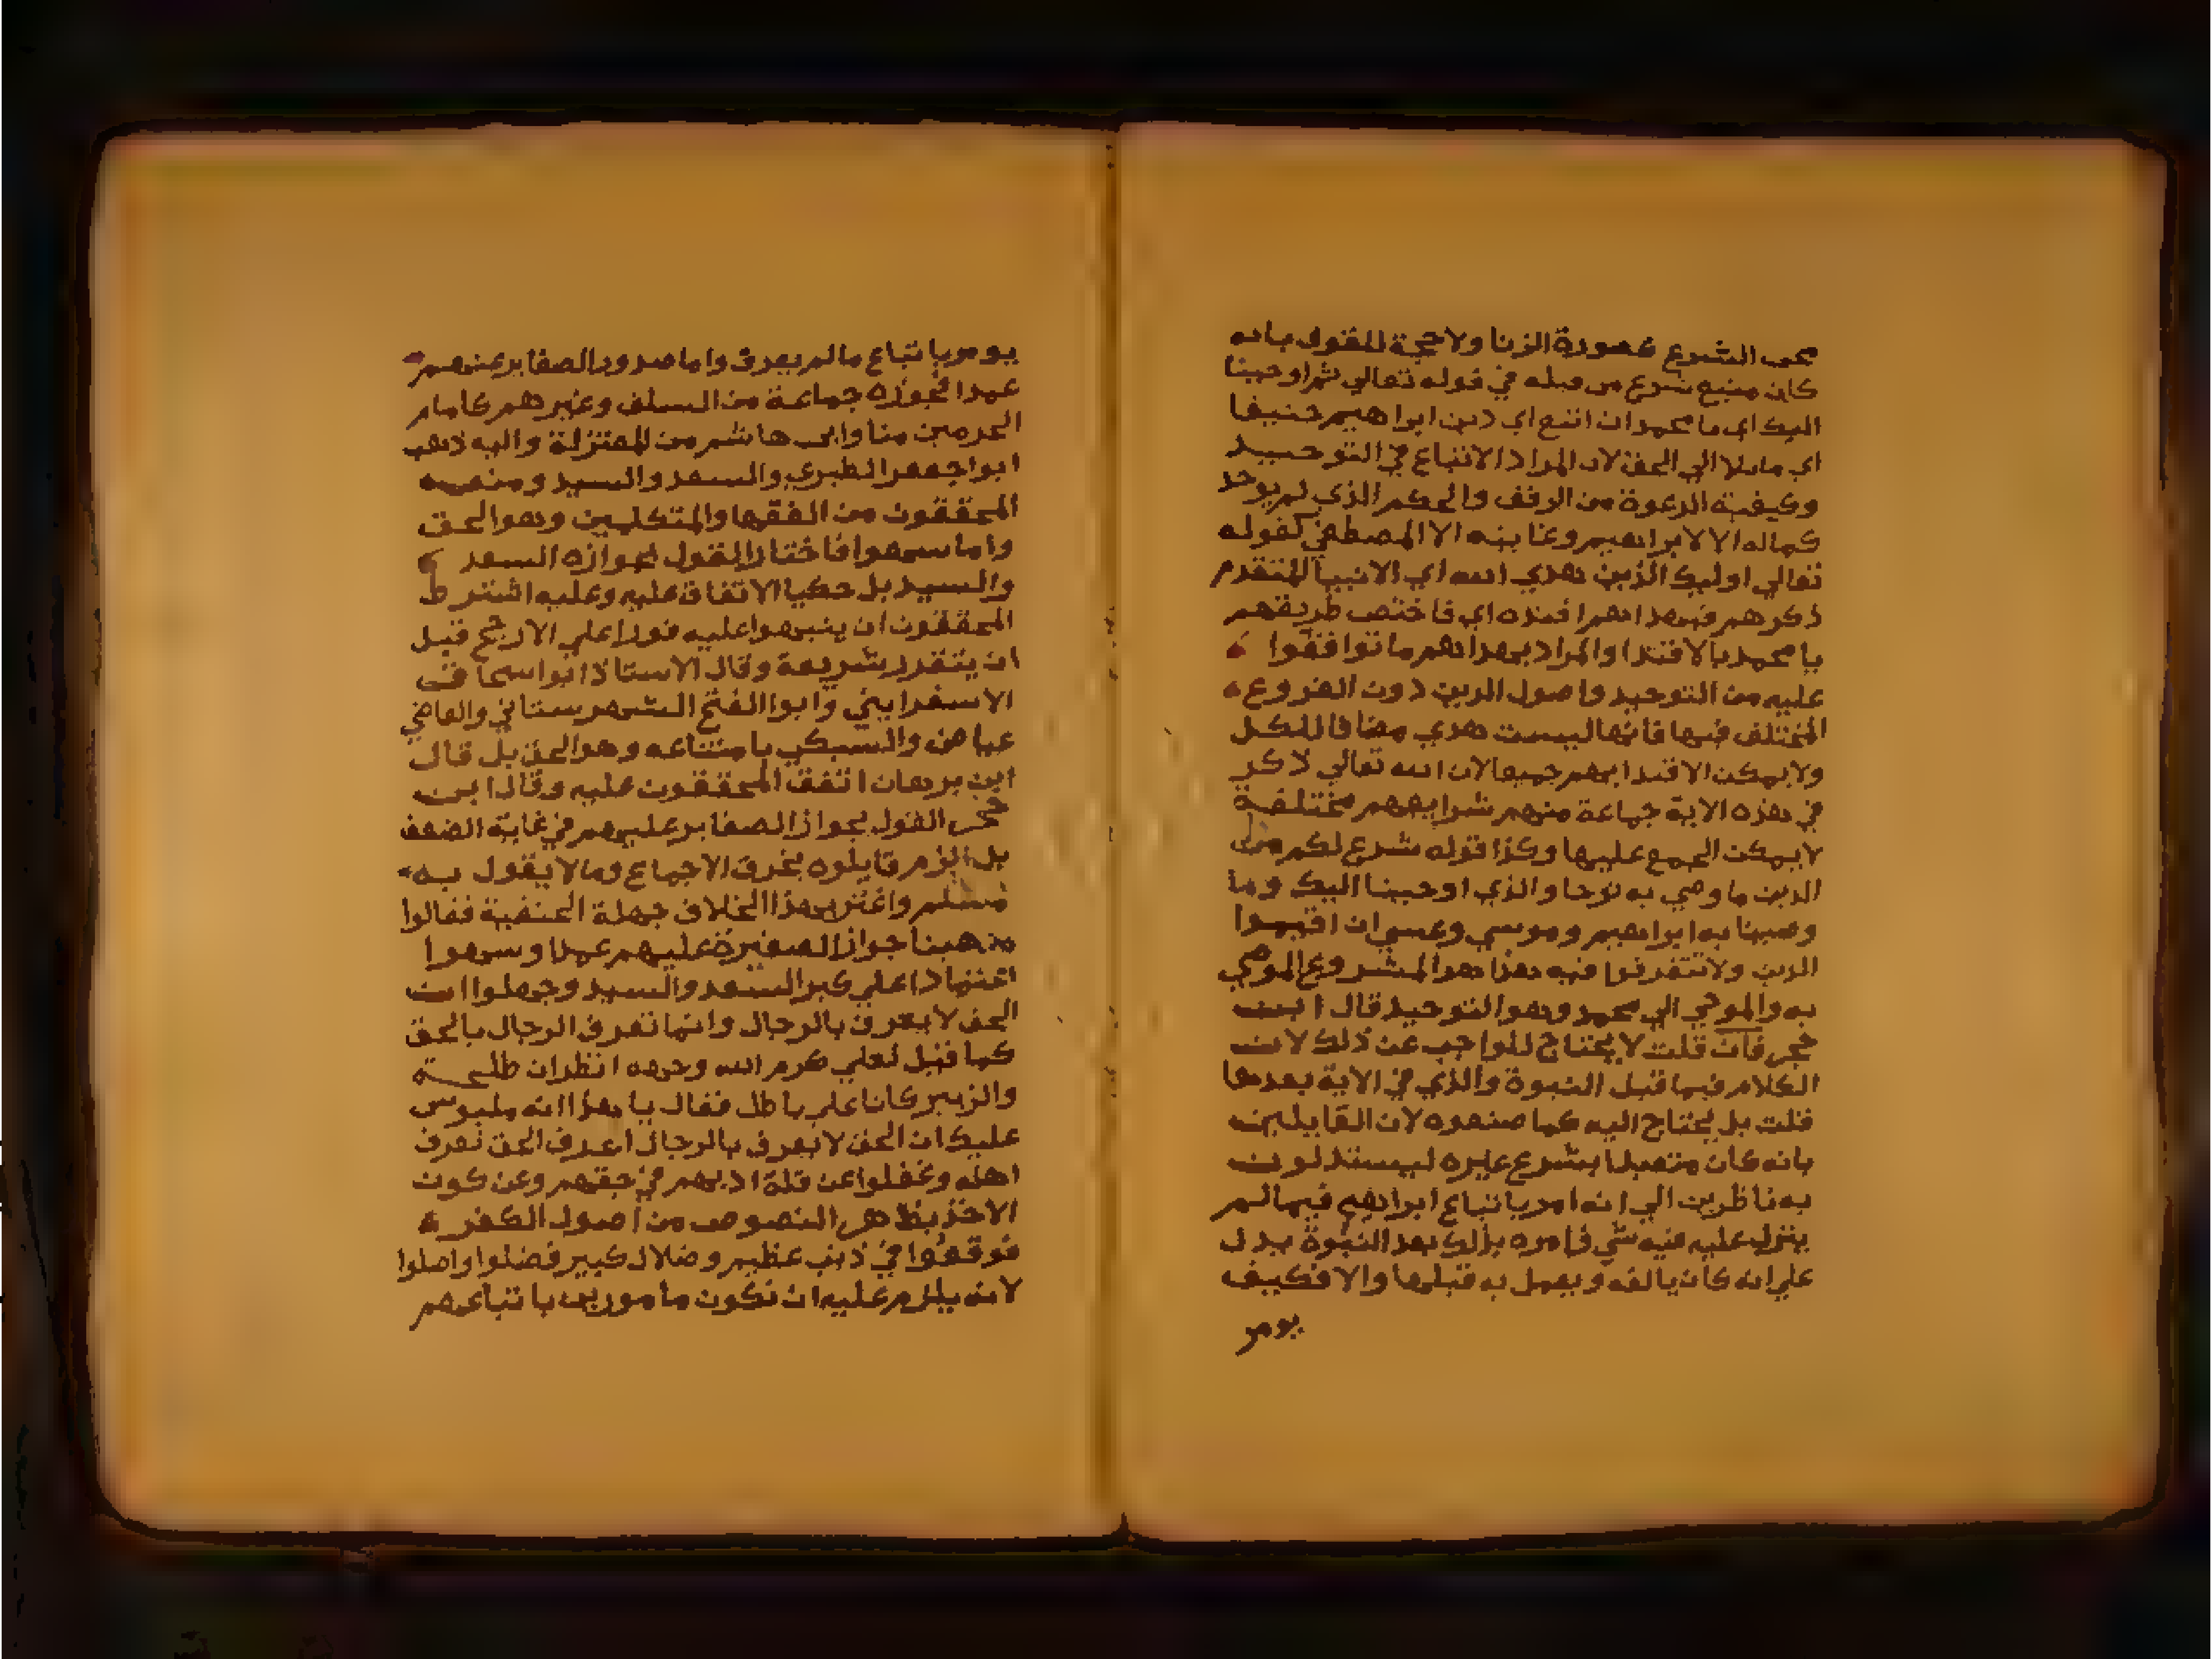 محب الشرع فصورة الزنا ولا حجة للقول بانه
كان متبع شرع من قبله في قوله تعالي ثم اوحينا
اليك اي يا محمد ان اتبع اي دين ابراهيم حنيفا
اي مايلا الي الحق لان المراد الاتباع في التوحيد
وكيفية الدعوة من الرفق والحكم الذي لم يوجد
كماله الا لابراهيم وغاينه الا المصطفي كقوله
تعالي اوليك الذين هدي الله اي الانبيا المتقدم
ذكرهم فبهداهم اقتده اي فاختص طريقهم
يا محمد بالاقتدا والمراد بهداهم ما توافقوا
عليه من التوحيد واصول الدين دون الفروع
المختلف فيها فانها ليست هدي مضافا للكل
ولا يمكن الاقتدا بهم جميعا لان الله تعالي ذكر
في هذه الاية جماعة منهم شرايعهم مختلفة
لا يمكن الجمع عليها وكذا قوله شرع لكم من
الدين ما وصي به نوحا والذي اوحينا اليك وما
وصينا به ابراهيم وموسي وعيسي ان اقيموا
الدين ولا تتفرقوا فيه هذا هو المشروع الموصي
به والموحي الي محمد وهو التوحيد قال ابن
حجر فان قلت لا يحتاج للواجب عن ذلك لان
الكلام فيما قبل النبوة والذي في الاية بعدها
قلت بل يحتاج اليه كما صنعوه لان القايلين
بانه كان متعبدا بشرع غيره ليستدلون
به ناظرين الي انه امر باتباع ابراهيم فيما لم
ينزل عليه فيه شي فامره بذلك بعد النبوة يدل
علي انه كان يالفه ويعمل به قبلها والا فكيف
يومر
يومر باتباع ما لم يعرف واما صدور الصغاير عنهم
عمدا فجوزه جماعة من السلف وغيرهم كامام
الحرمين منا وابي هاشم من المعتزلة واليه ذهب
ابوا جعفر الطبري والسعد والسيد ومنعه
المحققون من الفقها والمتكلمين وهو الحق
واما سهوا فاختار القول بجوازه السعد
والسيد بل حكيا الاتفاق عليه وعليه اشترط
المحققون ان ينبهوا عليه فورا علي الارجح قبل
ان يتقرر شريعة وقال الاستاذ ابو اسحاق
الاسفرايني وابوا الفتح الشهرستاني والقاضي
عياض والسبكي بامتناعه وهو الحق بل قال
ابن برهان اتفق المحققون عليه وقال ابن
حجر القول بجواز الصغاير عليهم في غاية الضعف
بل الزم قايلوه بخرق الاجماع وما لا يقول به
مسلم واغتر بهذا الخلاف جهلة الحنفية فقالوا
مذهبنا جواز الصغيرة عليهم عمدا وسهوا
اعتمادا علي كبر السعد والسيد وجهلوا ان
الحق لا يعرف بالرجال وانما تعرف الرجال بالحق
كما قيل لعلي كرم الله وجهه انظر ان طلحة
والزبير كانا علي باطل فقال يا هذا انه ملبوس
عليك ان الحق لا يعرف بالرجال اعرف الحق تعرف
اهله وغفلوا عن قلة ادبهم في حقهم وعن كون
الاخذ بظاهر النصوص من اصول الكفر
فوقعوا في ذنب عظيم وضلال كبير فضلوا واضلوا
لانه يلزم عليه ان نكون مامورين باتباعهم